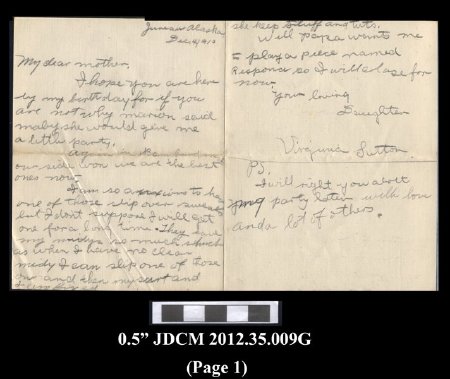 Juneau Alaska
Dec, 4, 1910
My dear mother,
I hope you are here
by my birthday for if you
are not why marion said
maby she would give me
a little party.
Again in
our side won we are the best
ones now.
I am so anxious to have
one of those slip over sweaters
but I don't suppose I will get
one for a long time. They save
my midys so much
as when I have no clean
midy I can slip one of those
on and then my skirt and
she keep stuff and tuts.
Well papa wants me
to play a piece named
Response so I will close for
now.
Your loving
Daughter
Virginia Sutton
PS.
I will right you about
my party later with love
and a lot of others.
0.5" JDCM 2012.35.009G
(Page 1)